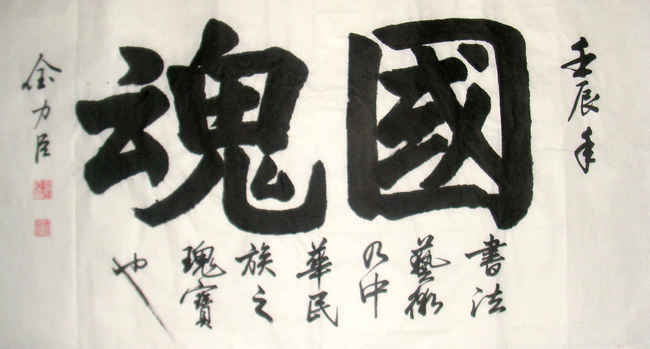 壬辰年
國魂
書法
藝術
乃中
華民
族之
瑰寶
也
金力臣